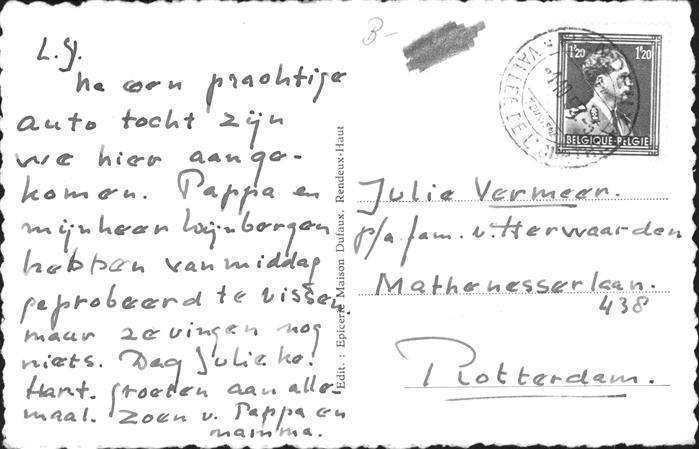 B-
L. J.
Na een prachtige
auto tocht zijn
we hier aange-
komen. Pappa en
mijnheer Wijnbergen
hebben vanmiddag
geprobeerd te vissen.
maar ze vingen nog
niets. Dag Julieke.
Hart. groeten aan alle-
maal. Zoen v. Pappa en
mamma.
Edit. : Epicerie Maison Dufaux, Rendeux-Haut
1F20 1F20
BELGIQUE-BELGIE
Julie Vermeer.
p/a fam. v. Herwaarden
Mathenesserlaan.
438
Rotterdam.